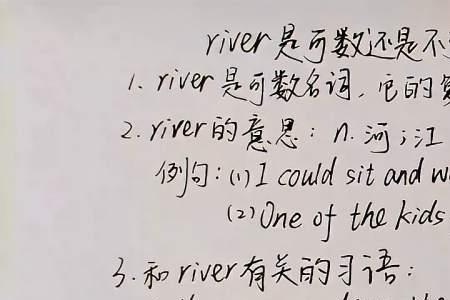 river是可数还是不
1. river是可数名词, 它的
2. river的意思: n. 河;江
例句:(1)I could sit and w
(2)One of the kids
3. 和river有关的习语: